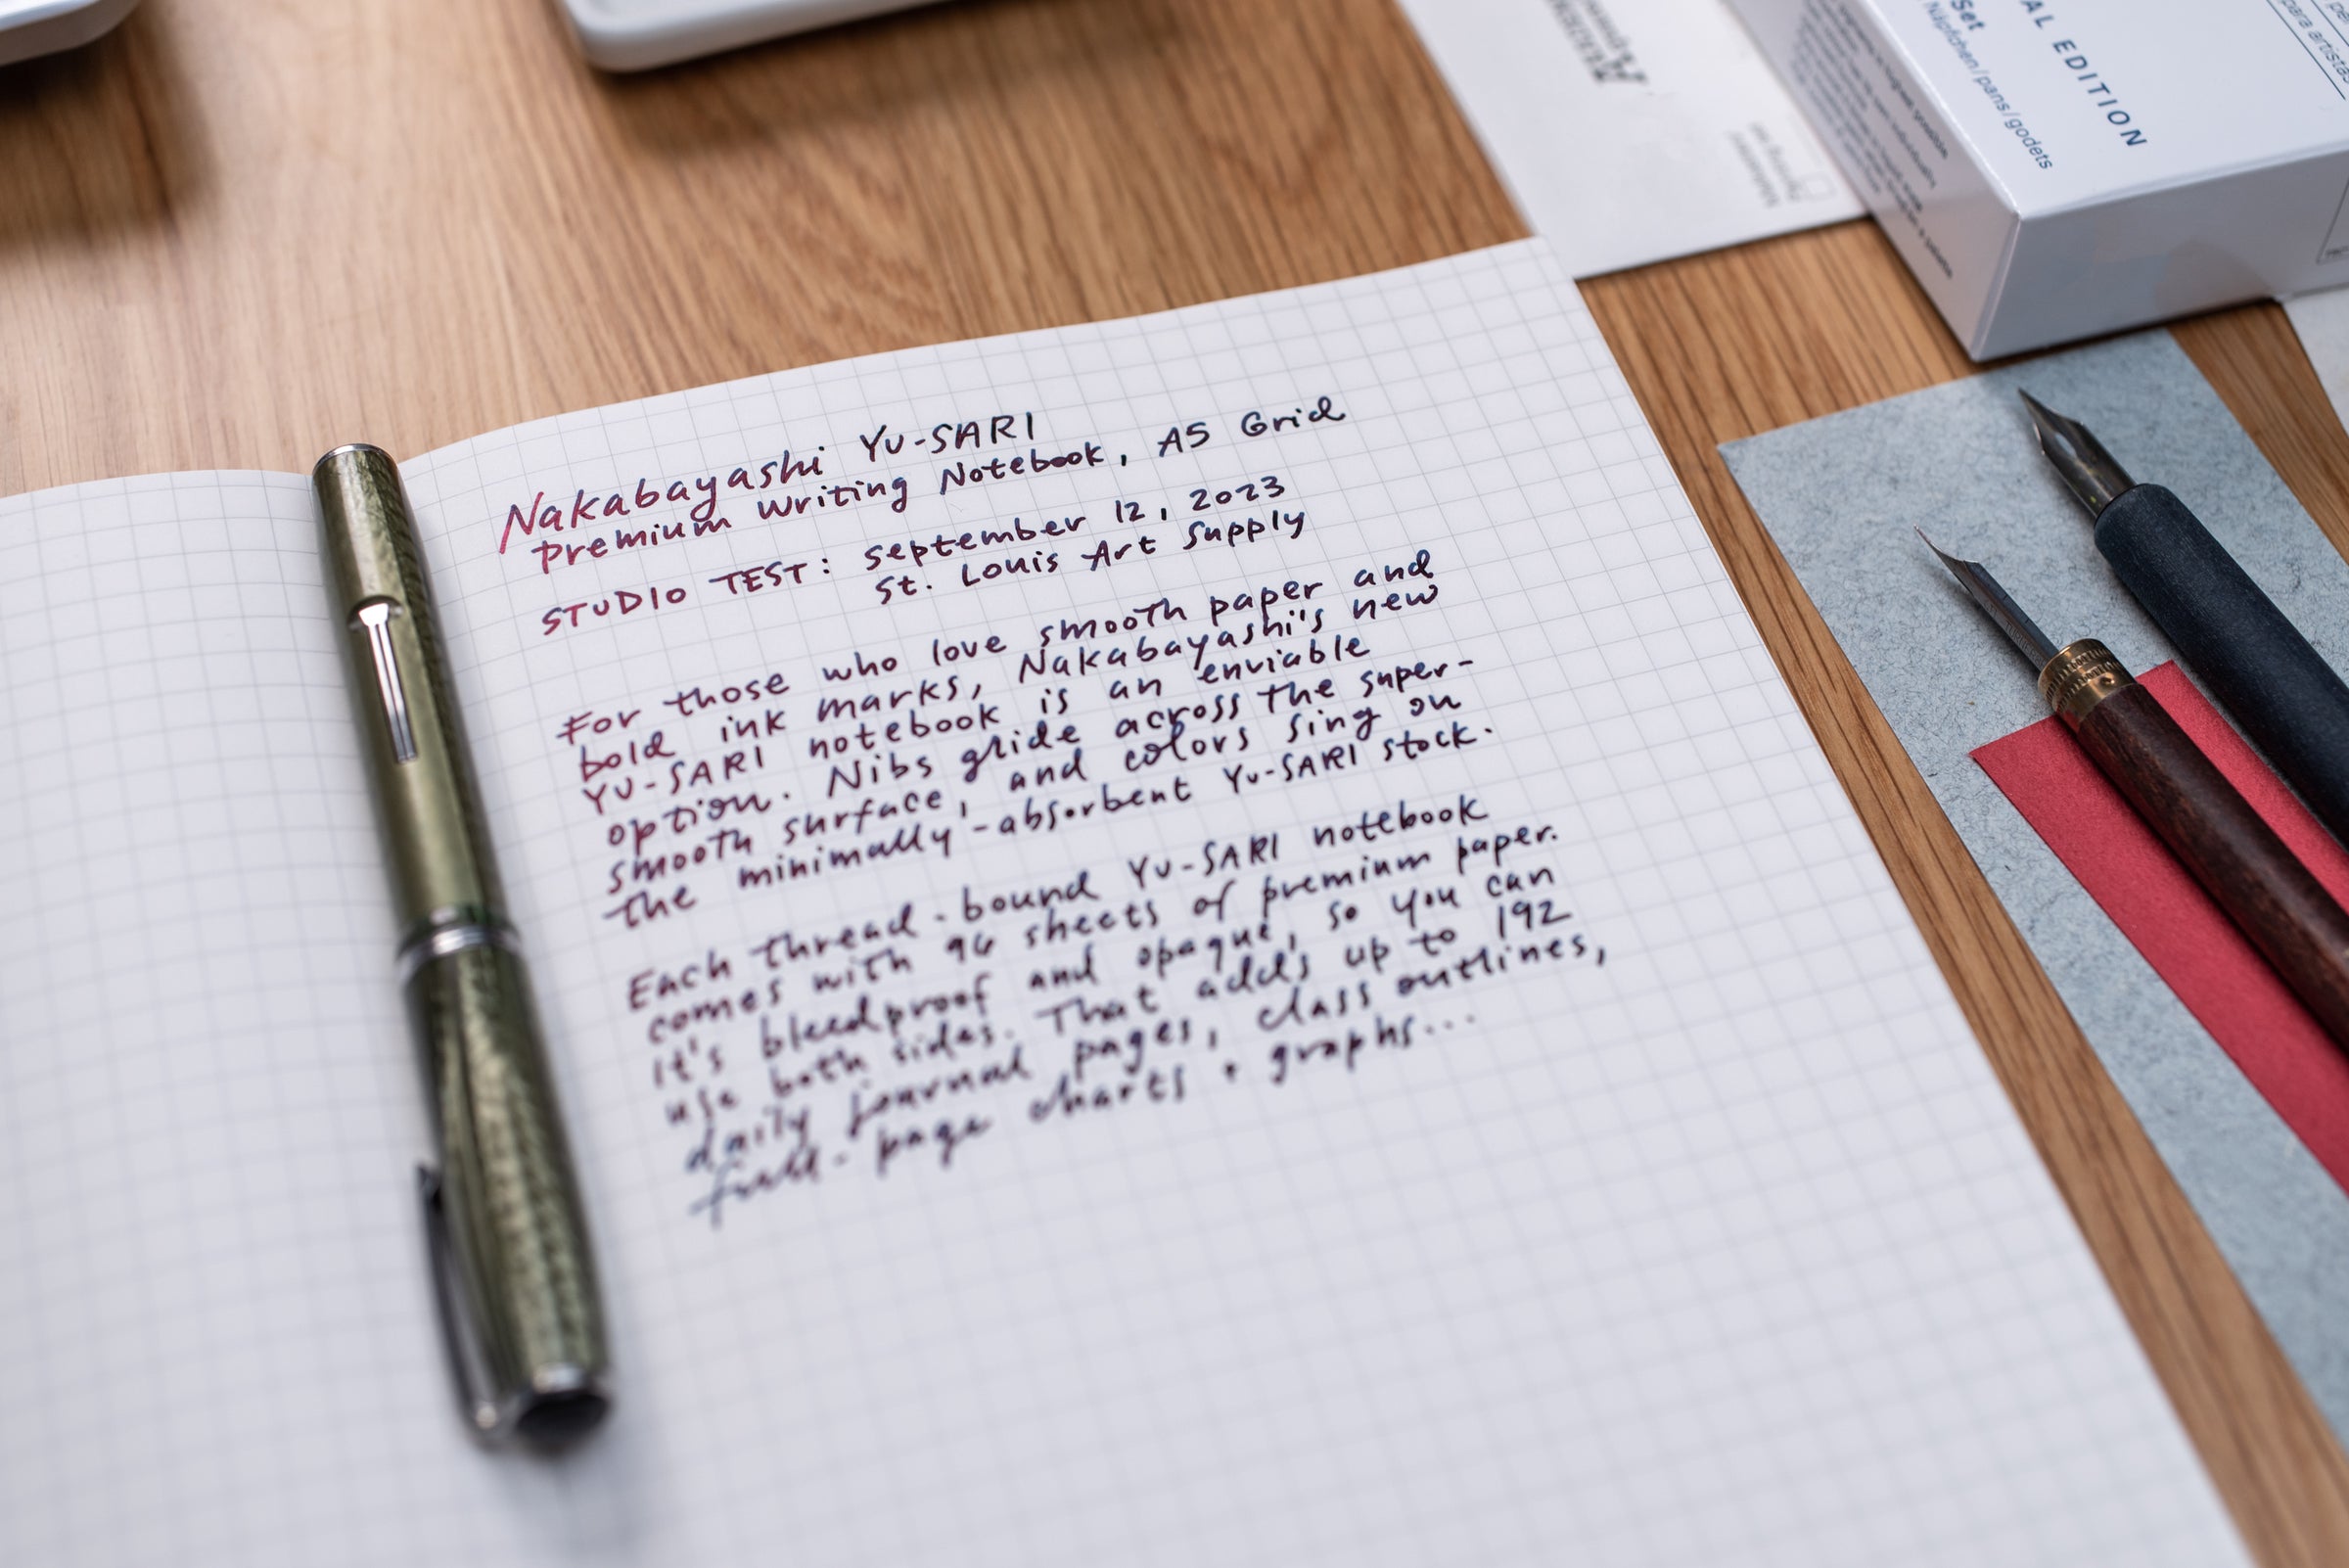 Nakabayashi YU-SARI
Premium Writing Notebook, A5 Grid
STUDIO TEST: September 12, 2023
St. Louis Art Supply
For those who love smooth paper and
bold ink marks, Nakabayashi's new
YU-SARI notebook is an enviable
option. Nibs glide across the super-
smooth surface, and colors sing on
the minimally-absorbent YU-SARI stock.
Each thread-bound YU-SARI notebook
comes with 96 sheets of premium paper.
It's bleedproof and opaque, so you can
use both sides. That adds up to 192
daily journal pages, class outlines,
full-page charts + graphs...
AL EDITION
Set
Näpfchen/pans/godets
para artistas